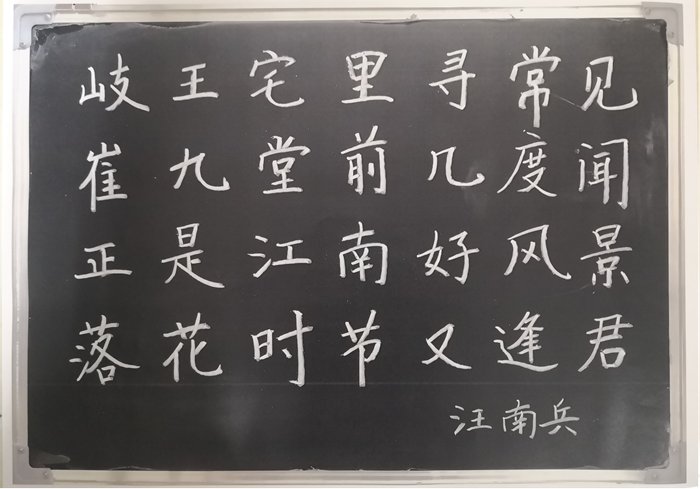 岐王宅里寻常见
崔九堂前几度闻
正是江南好风景
落花时节又逢君
汪南兵